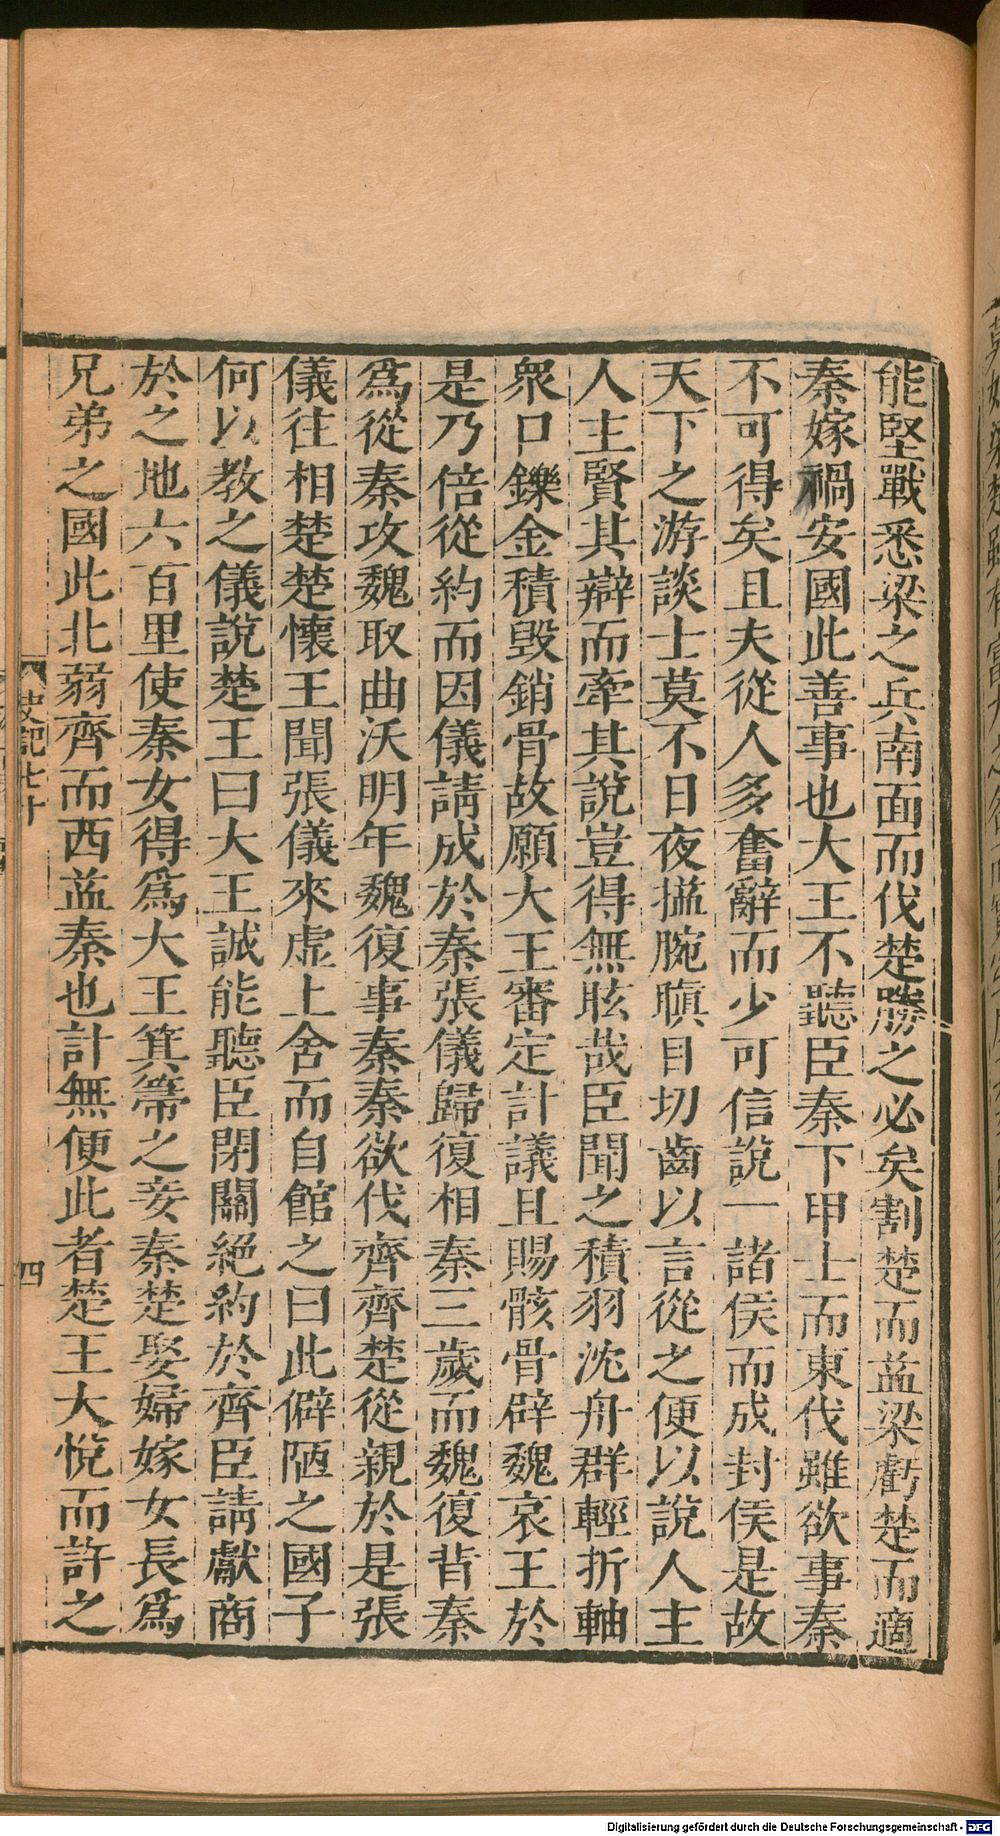 能堅戰悉梁之兵南面而伐楚勝之必矣割楚而益梁虧楚而適
秦嫁禍安國此善事也大王不聽臣秦下甲士而東伐雖欲事秦
不可得矣且夫從人多奮辭而少可信說一諸侯而成封侯是故
天下之游談士莫不日夜搤腕瞋目切齒以言從之便以說人主
人主賢其辯而牽其說豈得無眩哉臣聞之積羽沈舟群輕折軸
衆口鑠金積毀銷骨故願大王審定計議且賜骸骨辟魏哀王於
是乃倍從約而因儀請成於秦張儀歸復相秦三歲而魏復背秦
爲從秦攻魏取曲沃明年魏復事秦秦欲伐齊齊楚從親於是張
儀往相楚楚懷王聞張儀來虛上舍而自館之曰此僻陋之國子
何以教之儀說楚王曰大王誠能聽臣閉關絕約於齊臣請獻商
於之地六百里使秦女得爲大王箕箒之妾秦楚娶婦嫁女長爲
兄弟之國此北弱齊而西益秦也計無便此者楚王大悅而許之
史記七十
四
Digitalisierung gefördert durch die Deutsche Forschungsgemeinschaft - DFG